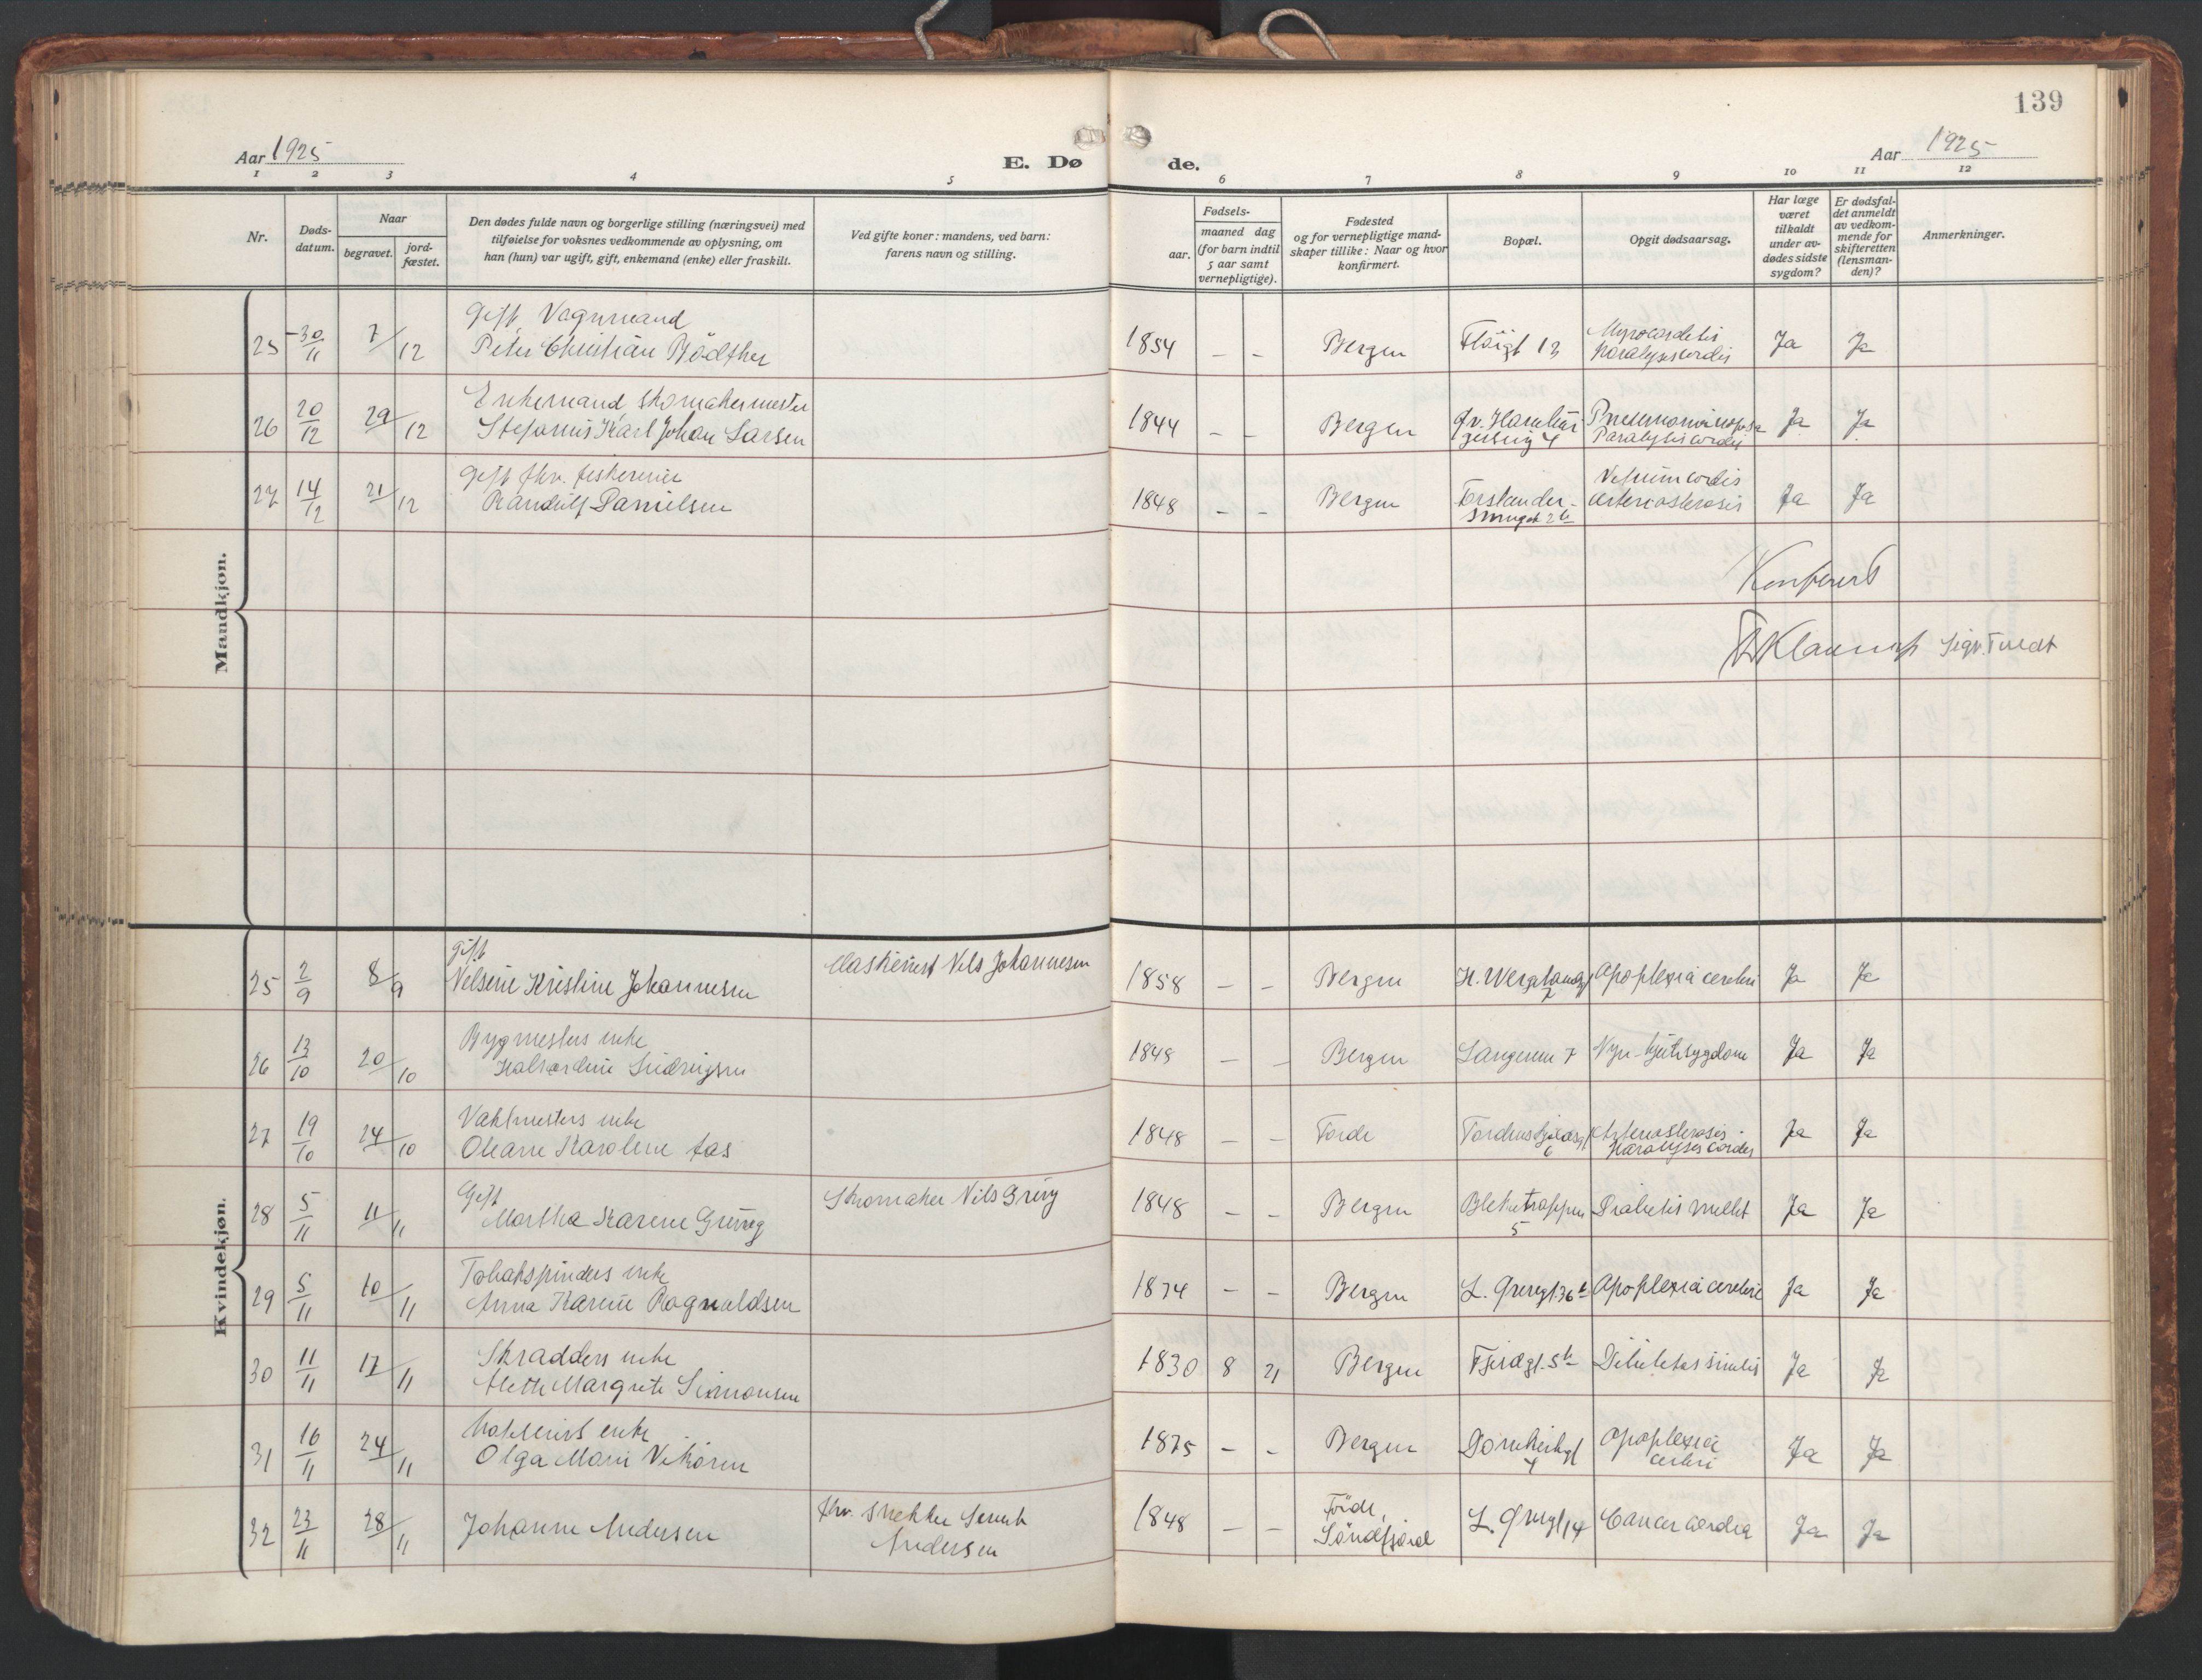 139
Aar 1925
E. Dø
de.
Aar 1925
1 2 3 4 5 6 7 8 9 10 11 12
Nr.
Døds-
datum.
Naar
begravet.
jord-
fæstet.
Den dødes fulde navn og borgerlige stilling (næringsvei) med
tilføielse for voksnes vedkommende av oplysning, om
han (hun) var ugift, gift, enkemand (enke) eller fraskilt.
Ved gifte koner: mandens, ved barn:
farens navn og stilling.
Fødsels-
aar.
maaned dag
(for barn indtil
5 aar samt
vernepligtige).
Fødested
og for vernepligtige mand-
skaper tillike: Naar og hvor
konfirmert.
Bopæl.
Opgit dødsaarsag.
Har læge
været
tilkaldt
under av-
dødes sidste
sygdom?
Er dødsfal-
det anmeldt
av vedkom-
mende for
skifteretten
(lensman-
den)?
Anmerkninger.
Mandkjøn.
25 30/11 7/12 Gift, Vognmand
Peter Christian Bødtker 1854 – – Bergen Fløigt 13 Myocarditis
Paralysis cordis Ja Ja
26 20/12 29/12 Enkemand, skomakermester
Stefanus Karl Johan Larsen 1844 – – Bergen 4 Paralysis cordis Ja Ja
27 14/12 21/12 Gift fhv. fiskereier
Randulf Danielsen 1848 – – Bergen Forstander-
smuget 2 b Vitium cordis
arteriosklerosis Ja Ja
Konferert
Sigv. Tvedt
Kvindekjøn.
25 2/9 8/9 gift
Nelsine Kristine Johannesen Maskinist Nils Johannesen 1858 – – Bergen H. Wergelandsgt
7 Apoplexia cerebri Ja Ja
26 13/10 20/10 Bygmesters enke
1848 – – Bergen Langeveien 7 Nyre-hjertesygdom Ja Ja
27 19/10 24/10 Vaktmesters enke
Oleane Karoline Aas 1848 – – Førde Tordenskjoldsgt
6 Arteriosklerosis -
Paralysis cordis Ja Ja
28 5/11 11/11 Gift
Martha Karene Grieg Skomaker Nils Grieg 1848 – – Bergen Bleketrappen
5 Diabetis mellit Ja Ja
29 5/11 10/11 Tobakspinders enke
Anna Karine Ragnvaldsen 1834 – – Bergen L. Øvregt. 36 b Apoplexia cerebri Ja Ja
30 11/11 17/11 Skrædders enke
Mette Margrete Simonsen 1830 8 21 Bergen Fjeldgt. 5 b Debilitas senilis Ja Ja
31 16/11 24/11 enke
Olga Marie Vikøren 1875 – – Bergen Domkirkegt
4 Apoplexia
cerebri Ja Ja
32 23/11 28/11 Johanne Andersen fhv. snekker
Andersen 1848 – – Førde,
Søndfjord L. Øvregt 14 Cancer cardia Ja Ja